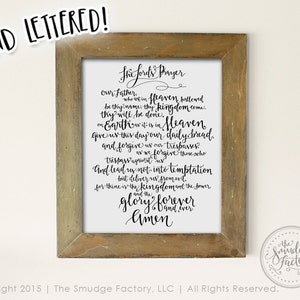 ND LETTERED!
The Lord's Prayer
Our Father,
who art in Heaven hallowed
be thy name; thy kingdom come
thy will be done;
on Earth as it is in Heaven
Give us this day our daily bread,
and forgive us our trespasses
as we forgive those who
trespass against us
And lead us not into temptation
but deliver us from evil
for thine is the kingdom and the power
and the
glory forever
and ever
Amen
the
Smudge
Factory
right 2015 | The Smudge Factory, LLC | All Rights Reserved.